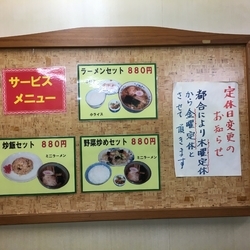 サービス
メニュー
ラーメンセット 880円
小ライス
炒飯セット 880円
ミニラーメン
野菜炒めセット 880円
ミニラーメン
定休日変更の
お知らせ
都合により木曜定休
から金曜定休と
させて頂きます